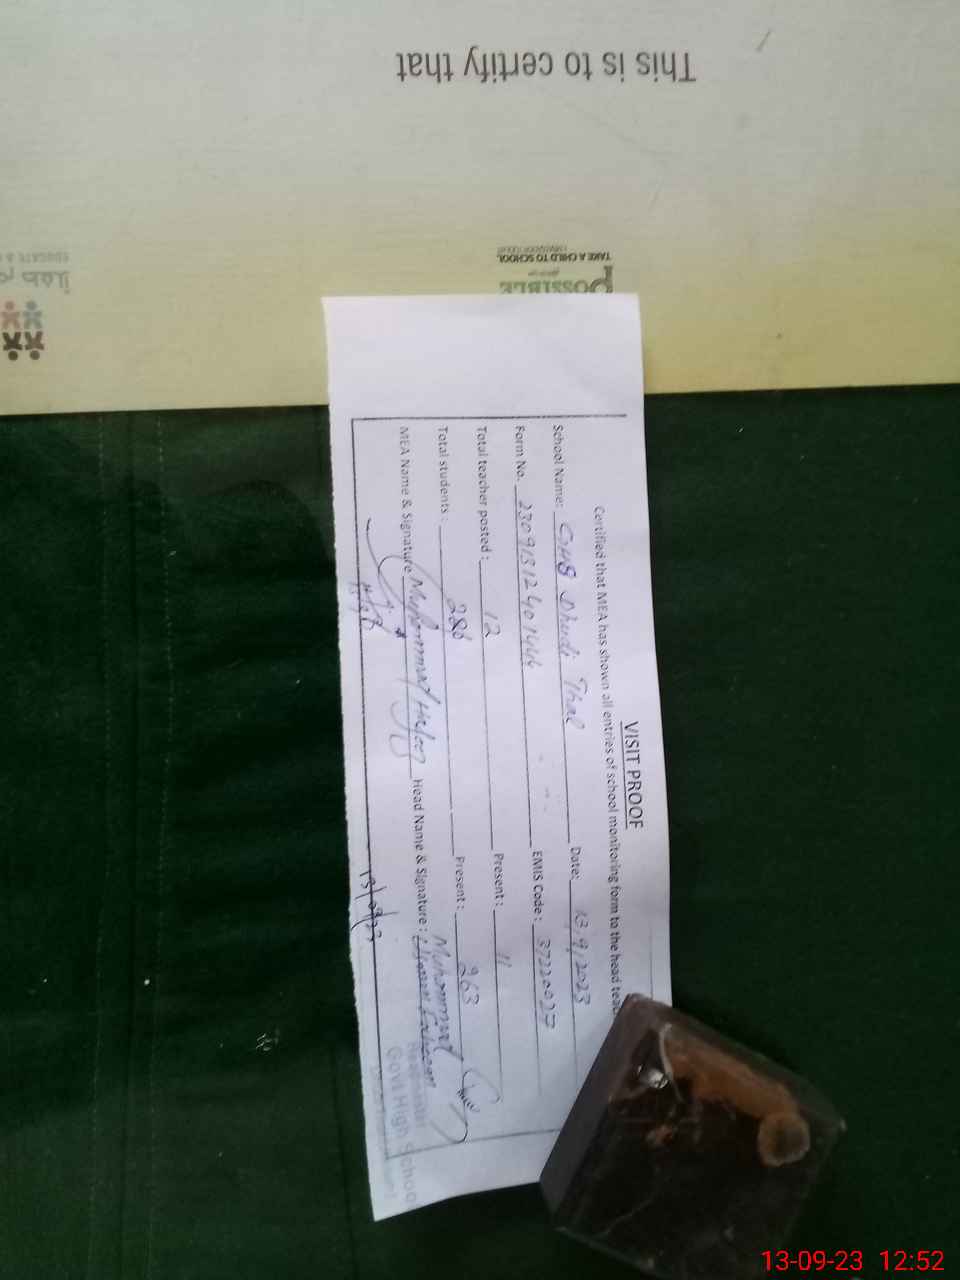 This is to certify that
TAKE A CHILD TO SCHOOL
POSSIBLE
EDUCATE A
VISIT PROOF
Certified that MEA has shown all entries of school monitoring form to the head
School Name: GHS Dhudi Thal Date: 13/9/2023
Form No. EMIS Code: 37220027
Total teacher posted: 12 Present: 11
Total students: 286 Present: 263
MEA Name & Signature Muhammad Hafeez Head Name & Signature: Muhammad
13/09/23
Govt High School
13-09-23 12:52